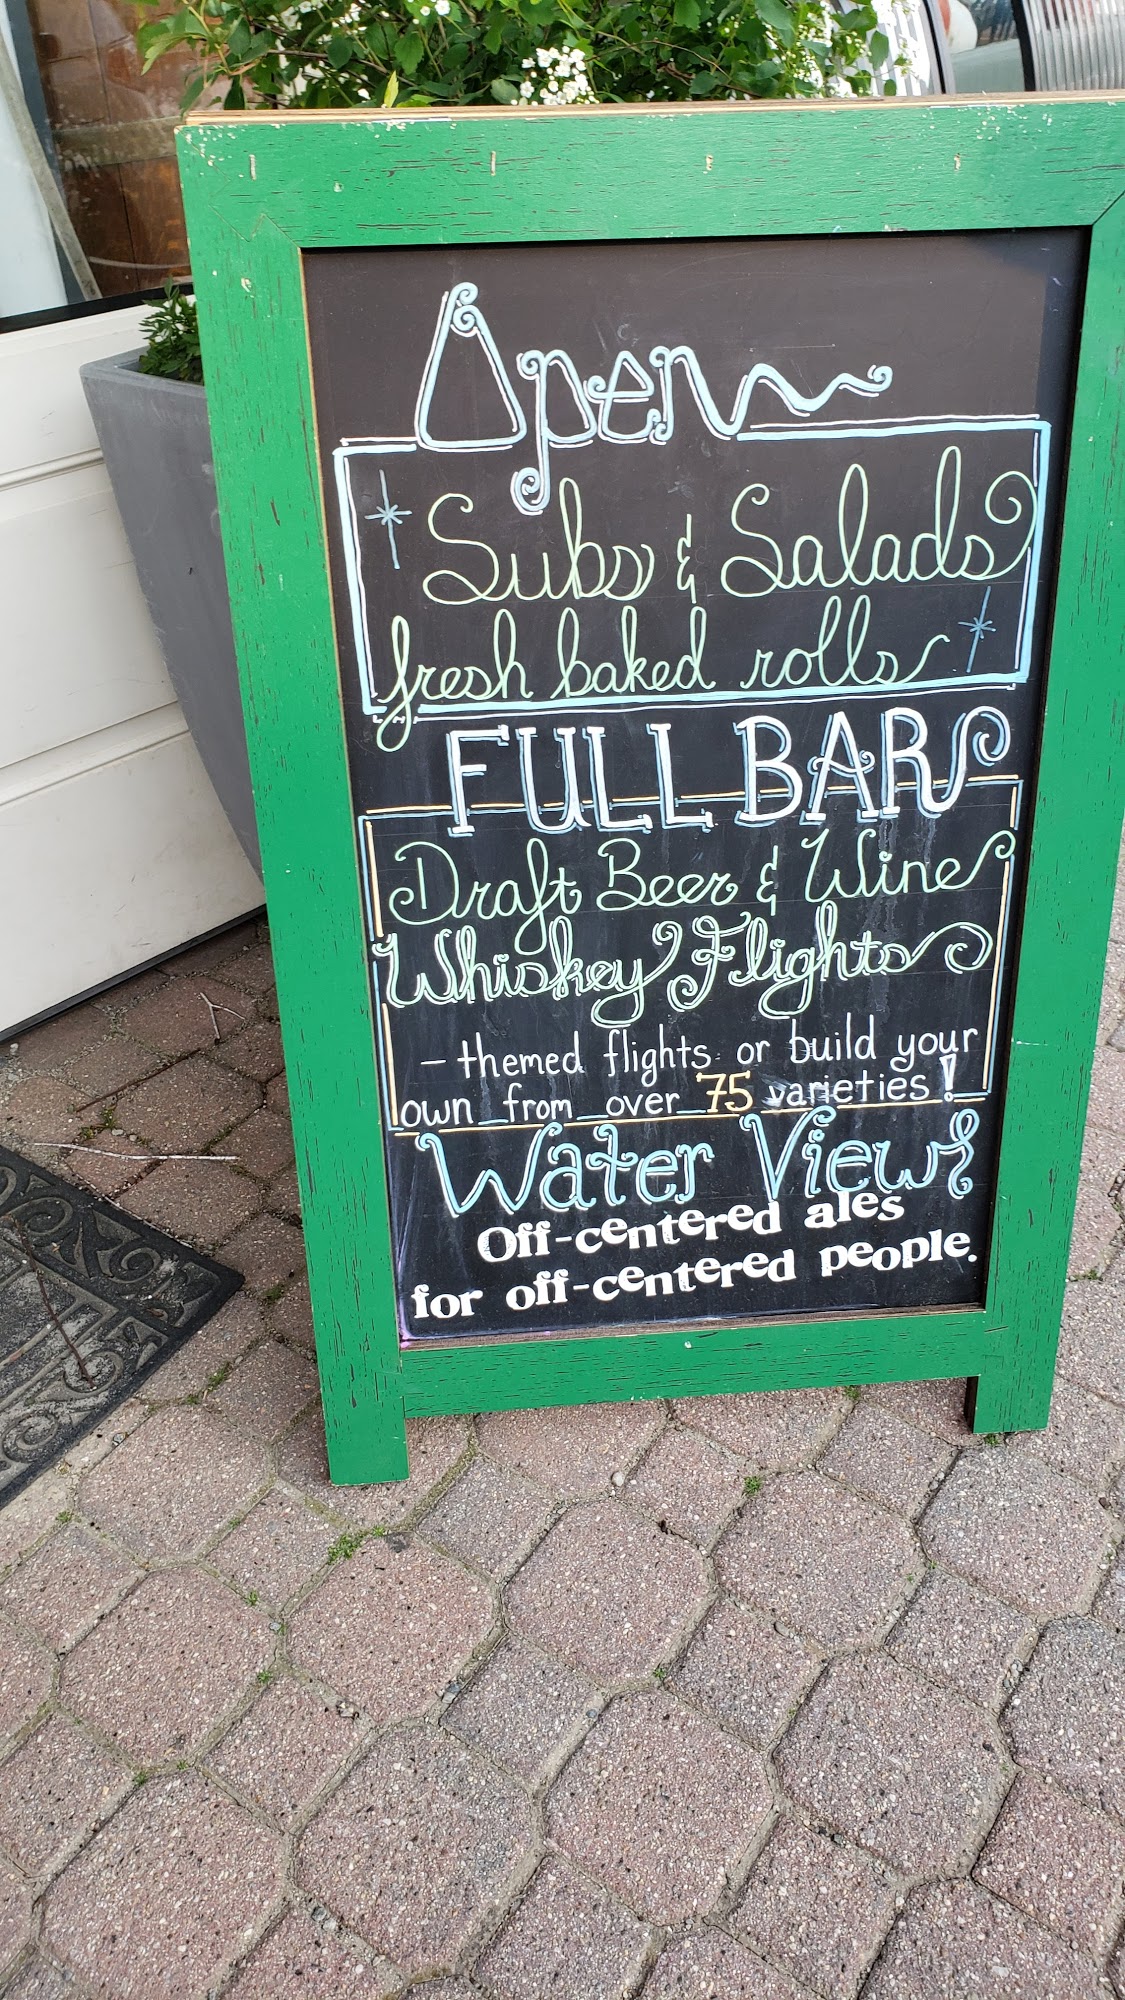 Open
Subs & Salads
fresh baked rolls
FULL BAR
Draft Beer & Wine
Whiskey Flights
- themed flights or build your
own from over 75 varieties!
Water View
Off-centered ales
for off-centered people.